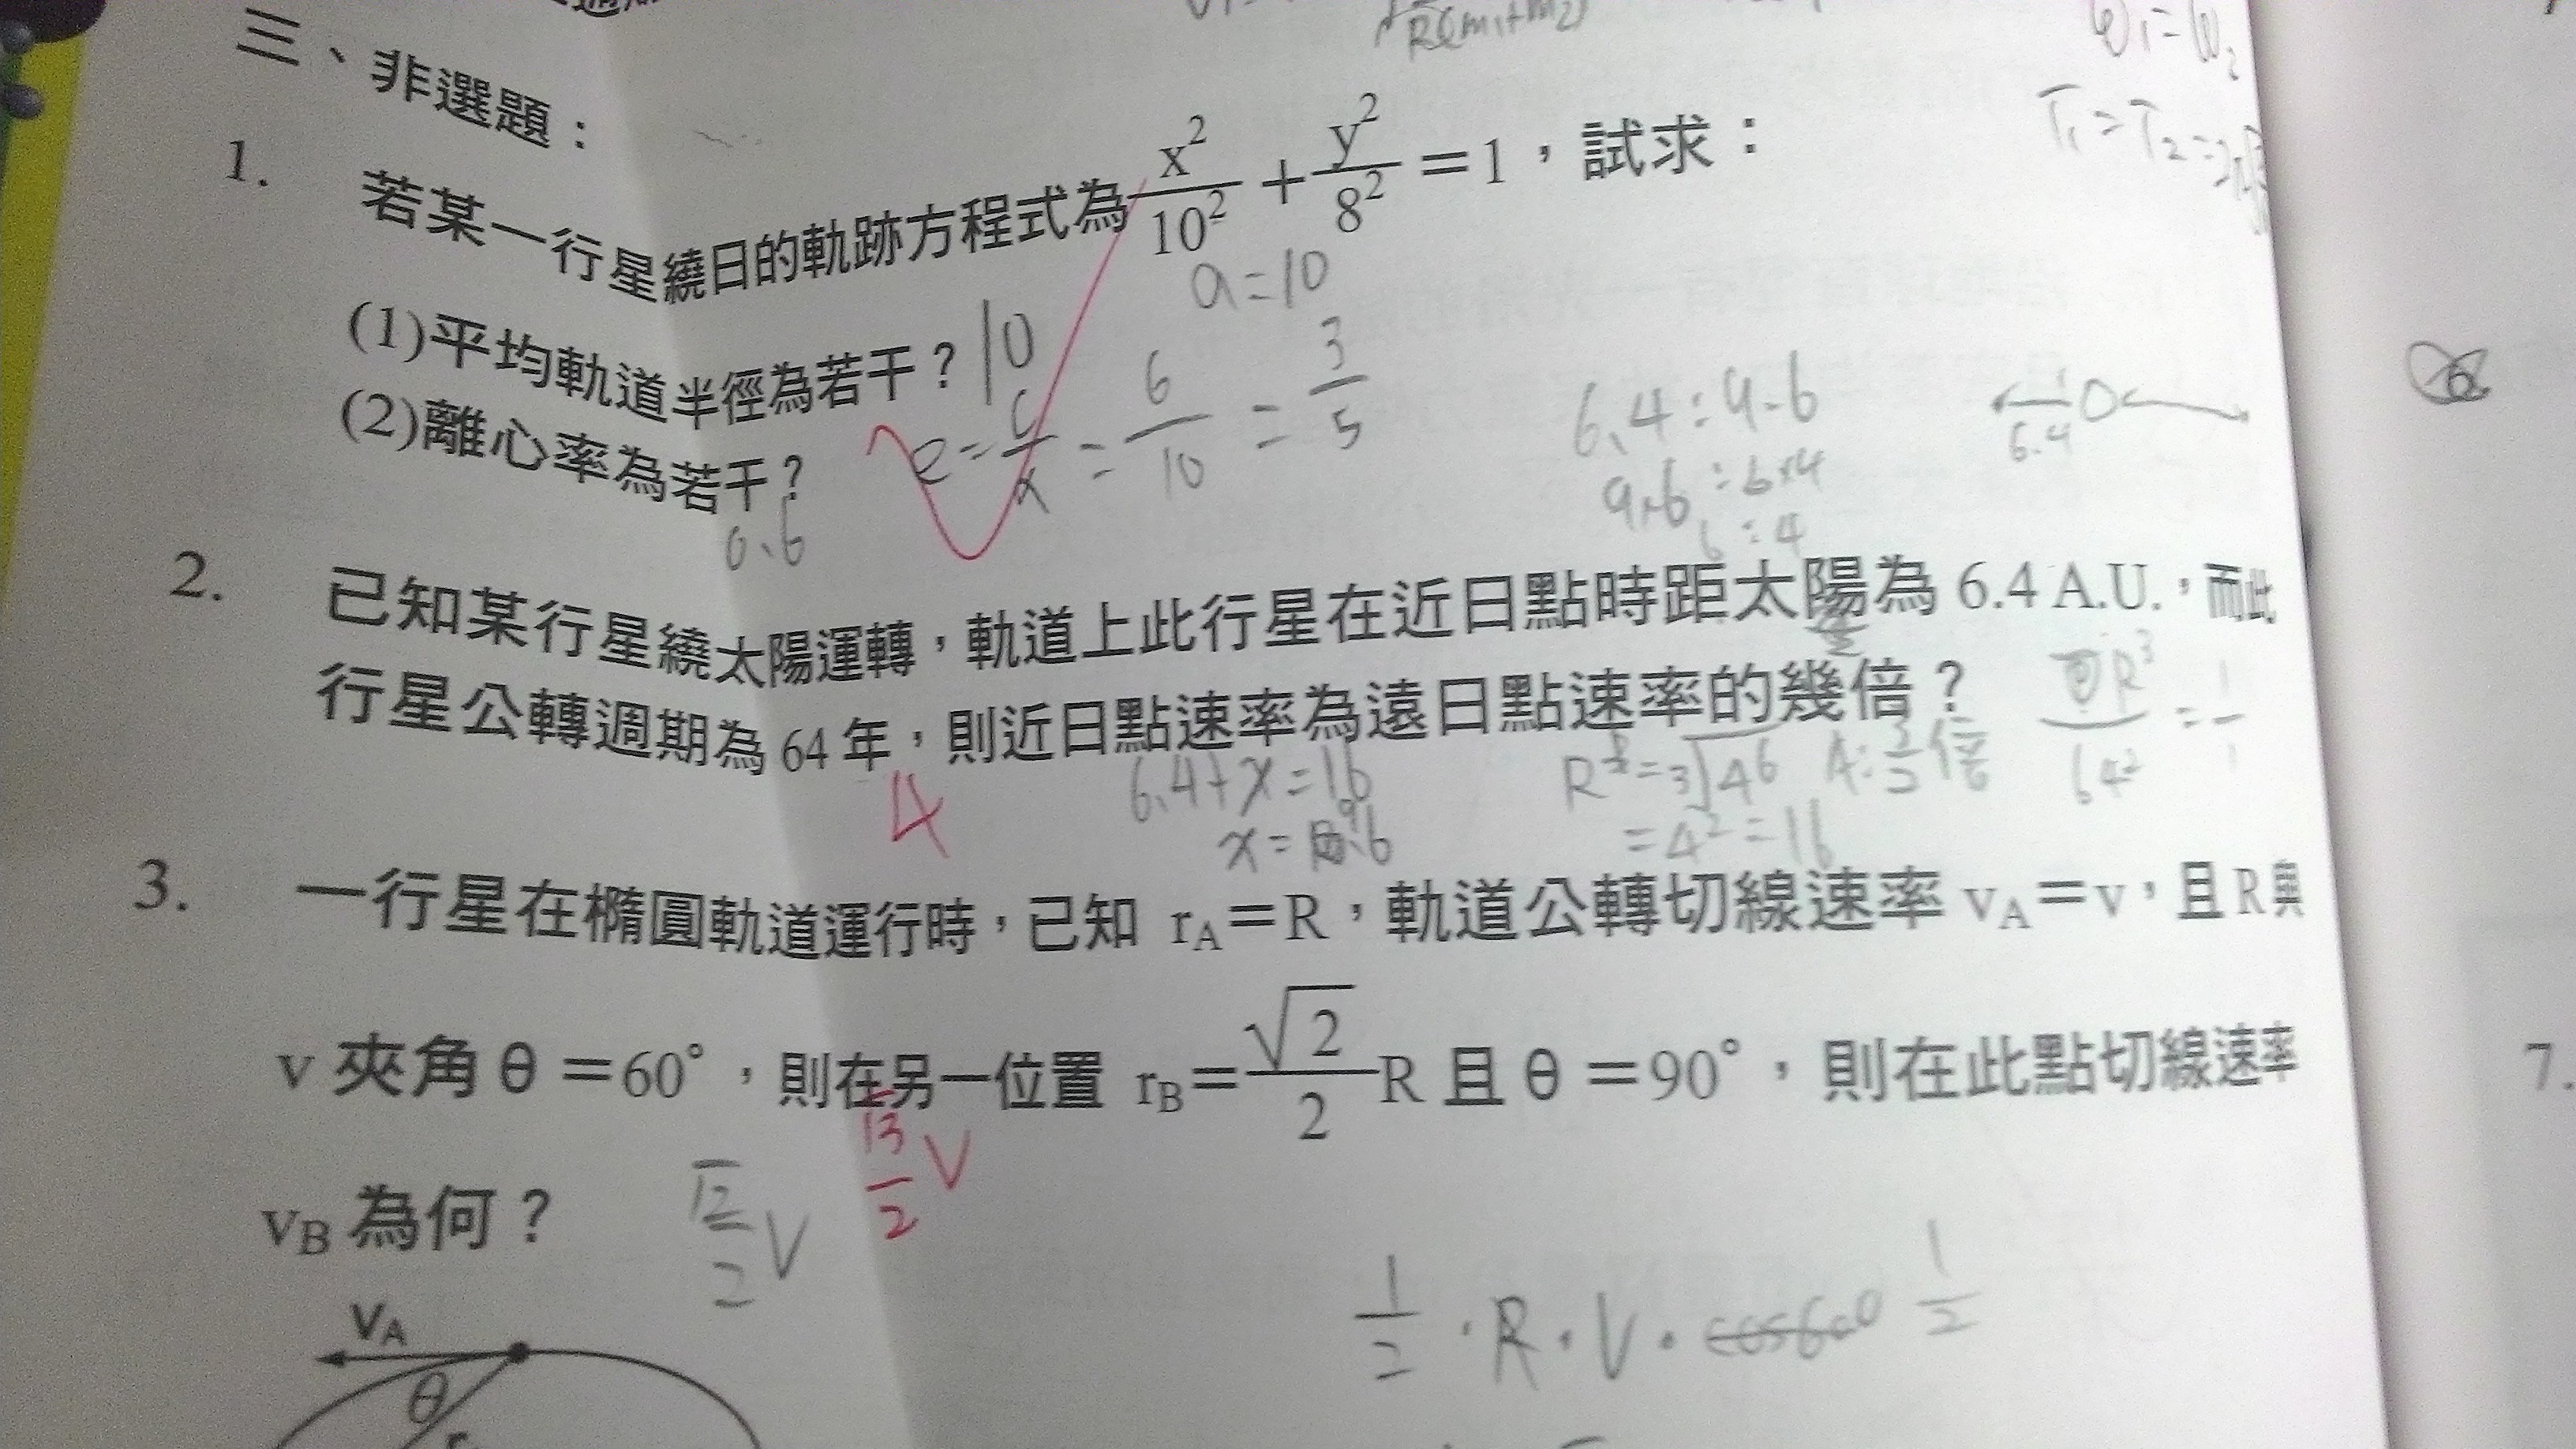 R(m₁+m₂)
三、非選題：
1. 若某一行星繞日的軌跡方程式為 x²/10² + y²/8² = 1，試求：
a=10
T₁=T₂=
(1)平均軌道半徑為若干？ 10
(2)離心率為若干？ e= c/x = 6/10 = 3/5
0.6
6.4:9.6
9.6:6.4
6:4
6.4
2. 已知某行星繞太陽運轉，軌道上此行星在近日點時距太陽為 6.4 A.U.，而此
行星公轉週期為 64 年，則近日點速率為遠日點速率的幾倍？
R³/64² = 1/1
4
6.4+x=16
x=9.6
R=³√4⁶
=4²=16
3. 一行星在橢圓軌道運行時，已知 rA＝R，軌道公轉切線速率 vA＝v，且 R 與
v 夾角 θ＝60°，則在另一位置 rB＝√2/2 R 且 θ＝90°，則在此點切線速率
vB 為何？ √2/2 V
√3/2 V
1/2·R·V·cos60 1/2
vA
θ
7.